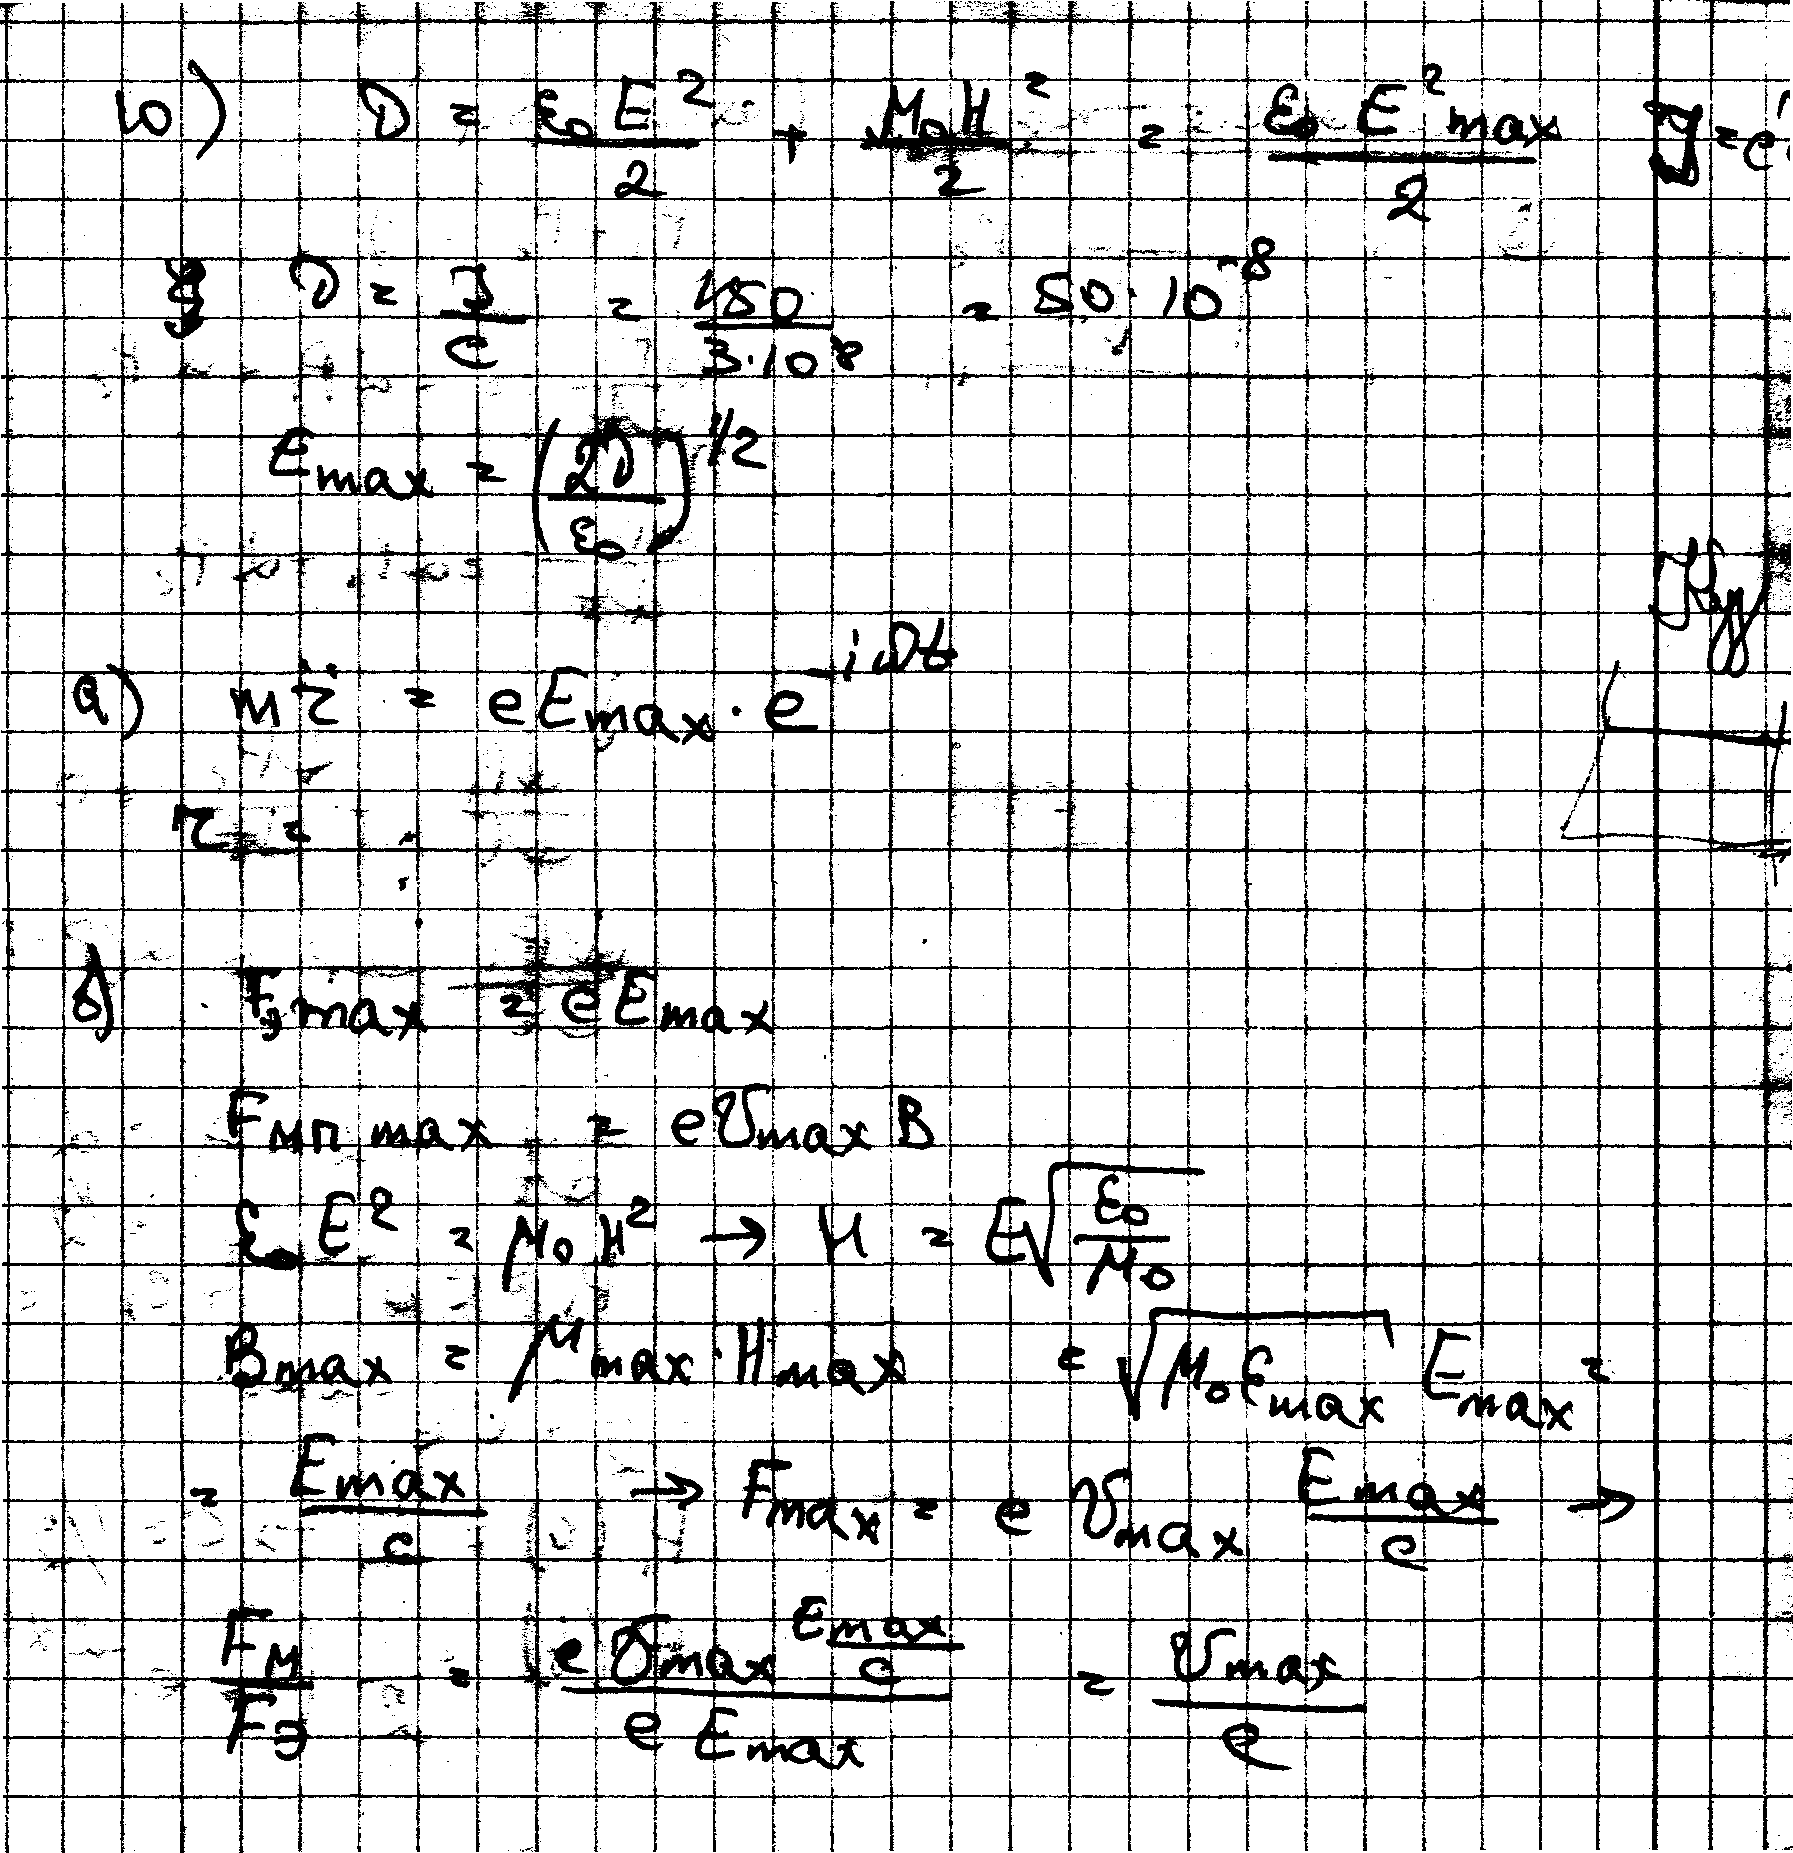 ю) D = ε₀E²/2 + μ₀H²/2 = ε₀E²max/2 J = c
D = J/c = 150/3·10⁸ = 50·10⁻⁸
Emax = (2D/ε₀)^1/2
а) m r̈ = eEmax · e^-iωt
r =
б) Fэmax = eEmax
Fмп max = eVmax B
ε₀E² = μ₀H² → H = E√(ε₀/μ₀)
Bmax = μmax · Hmax = √(μ₀εmax) Emax =
= Emax/c → Fmax = e Vmax Emax/c →
Fм/Fэ = e Vmax Emax/c / e Emax = Vmax/c